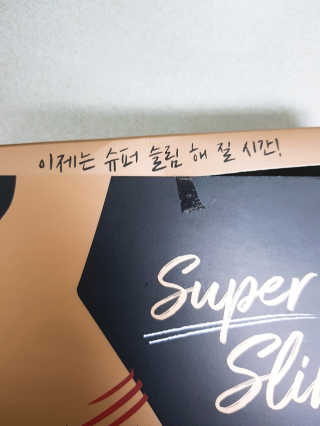 이제는 슈퍼 슬림 해 질 시간!
Super